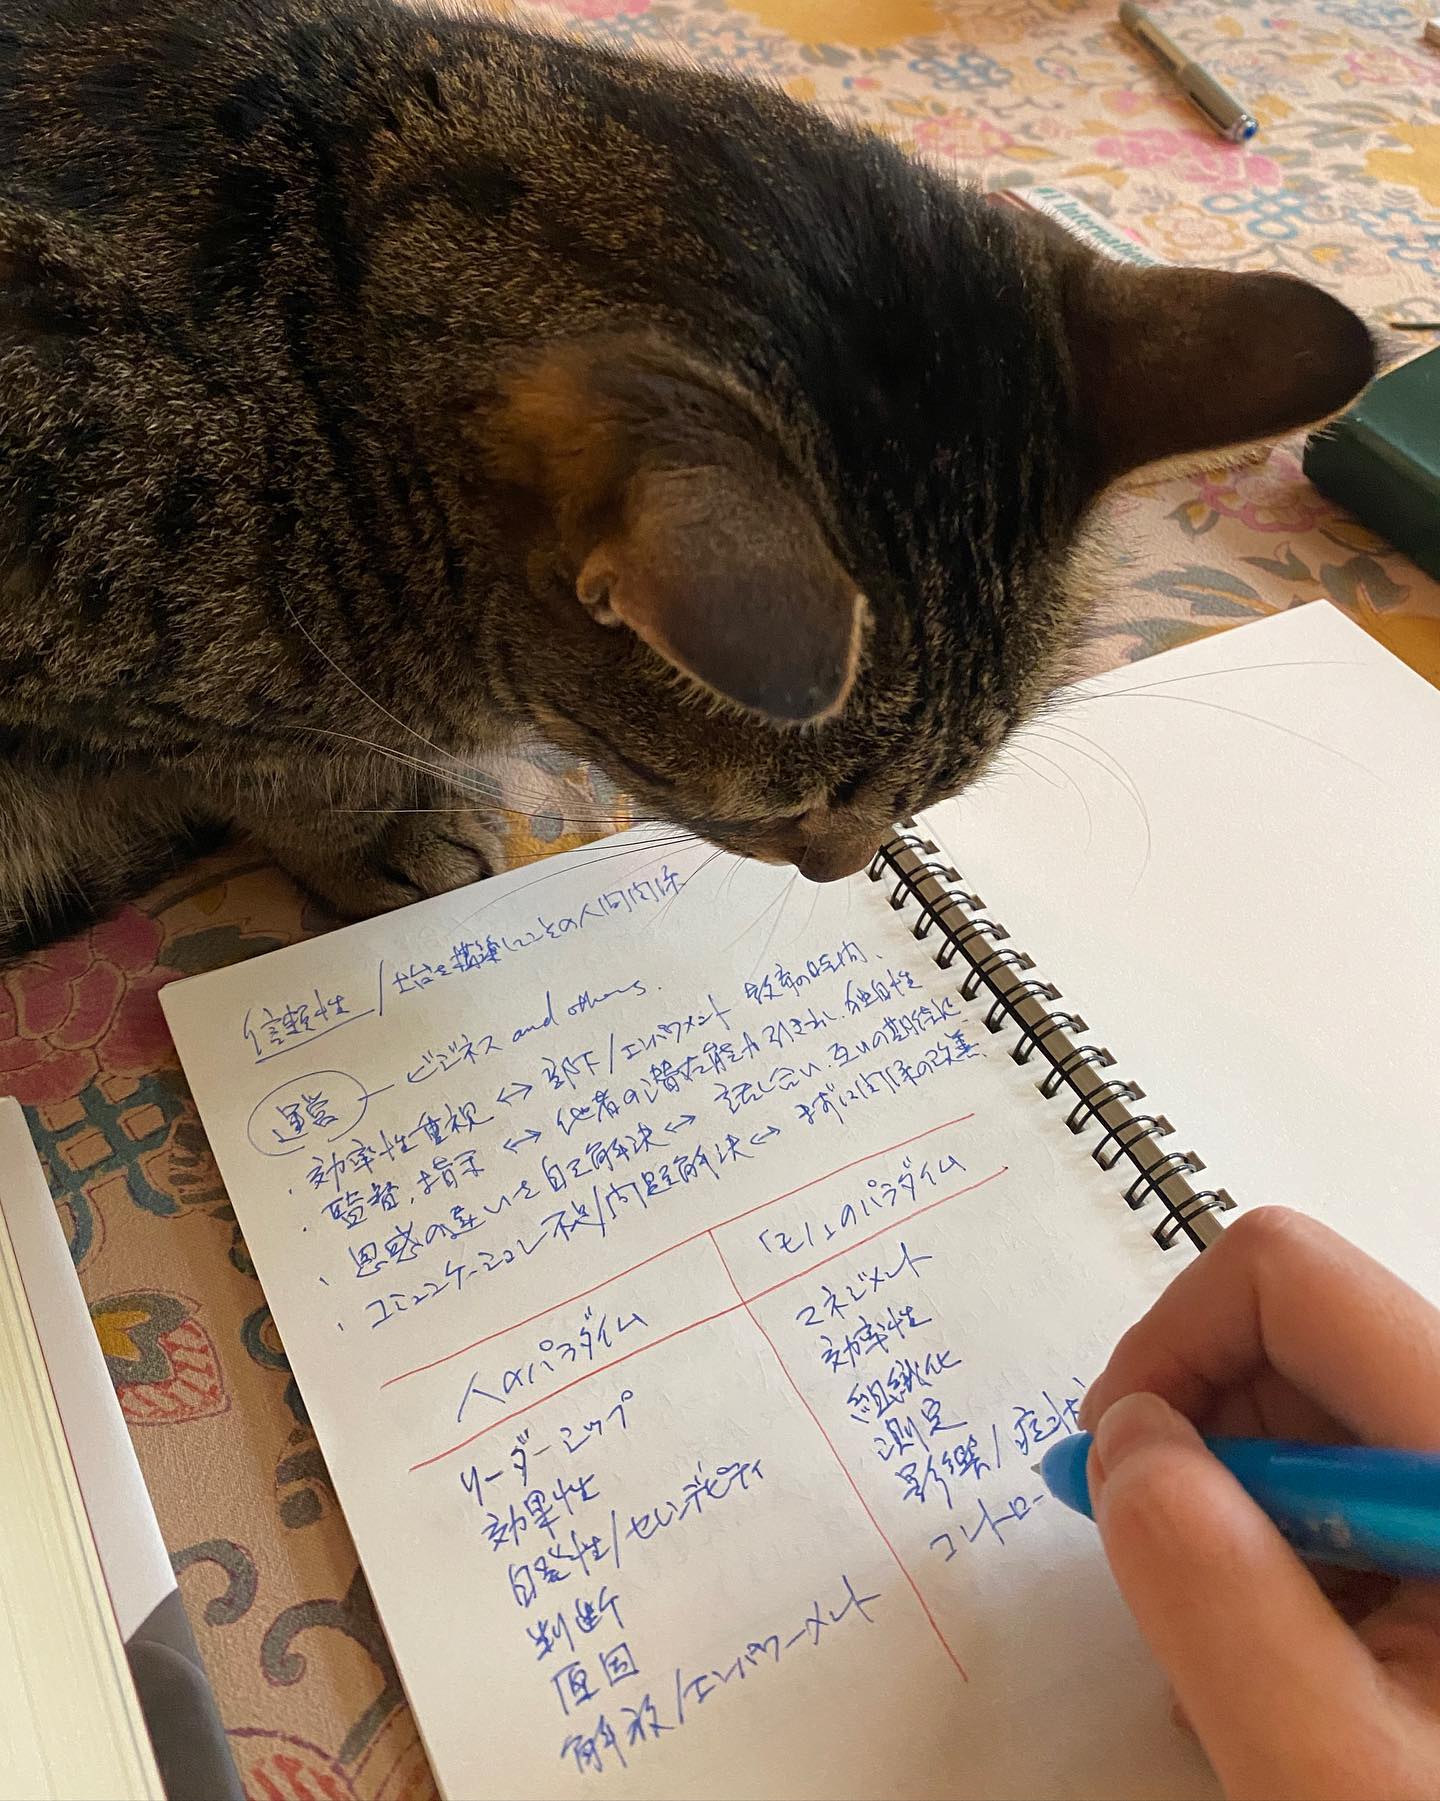 #1 Internation
信頼性/土台を構築してこその人間関係
運営 ― ビジネス and others.
・効率性重視 ↔ 部下/エンパワメント 効率の時間、
・監督、指示 ↔ 他者の潜在能力引き出し、独自性
・思惑の違いを自己解決 ↔ 話し合い、互いの期待に
・コミュニケーション不足/問題解決 ↔ まずは関係の改善、
人のパラダイム 「モノ」のパラダイム
リーダーシップ マネジメント
効果性 効率性
自発性/セレンデピティ 組織化
判断 測定
原因 影響/症状
解放/エンパワーメント コントロー